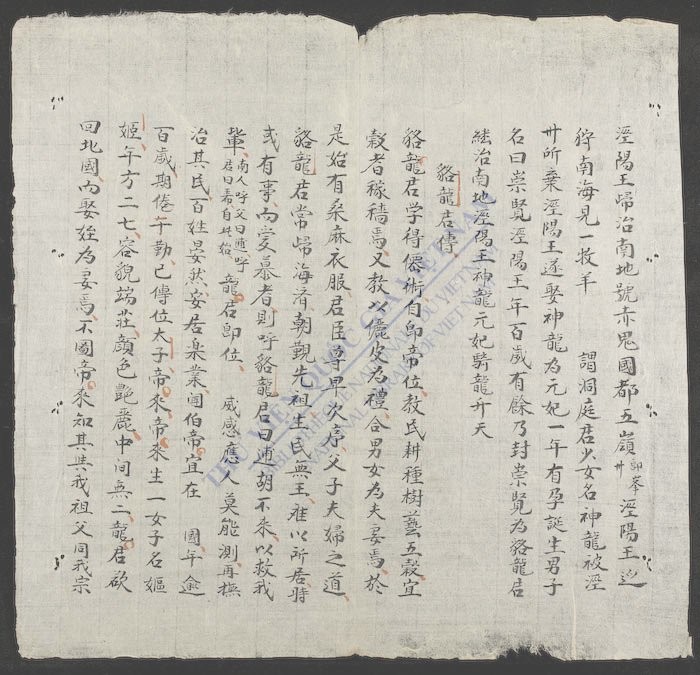 涇陽王歸治南地號赤鬼國都五嶺 卽峯 卅 涇陽王巡
狩南海見一牧羊 謂洞庭君少女名神龍被涇
卅所棄涇陽王遂娶神龍為元妃一年有孕誕生男子
名曰崇覽涇陽王年百歲有餘乃封崇覽為貉龍君
継治南地涇陽王神龍元妃騎龍升天
貉龍君傳
貉龍君学得僊術自卽帝位教民耕種樹藝五穀宜
穀者稼穡焉又教以儷皮為禮合男女為夫妻焉於
是始有桑麻衣服君臣尊卑次序父子夫婦之道
貉龍君常歸海濟朝觀先祖生民無王雅以所居時
或有事而愛慕者則呼貉龍君曰逋胡不来以救我
輩 南人呼父曰逋呼 君曰㐌自此始 龍君卽位 威感應人莫能測再撫
治其民百姓晏然安居楽業闻伯帝宜在 國年逾
百歲期倦乍勤已傳位太子帝来帝来生一女子名嫗
姬年方二七容貌端莊顔色艶麗中间無二龍君欲
回北國而娶姪為妻焉不圖帝来知其共我祖父同我宗
THƯ VIỆN QUỐC GIA VIỆT NAM
BIBLIOTHÈQUE NATIONALE DU VIETNAM
NATIONAL LIBRARY OF VIETNAM